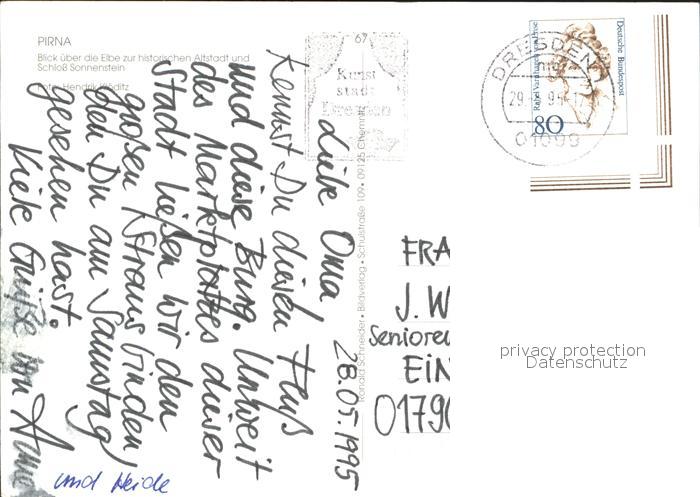 PIRNA
Blick über die Elbe zur historischen Altstadt und
Schloß Sonnenstein
Foto: Hendrik
67
Kunst
stadt
Dresden
DRESDEN
29
95
01099
Deutsche Bundespost
Rahel Varnhagen von Ense
80
28.05.1995
Liebe Oma
kennst Du diesen Fluß
und diese Burg. Unweit
des Marktplatzes dieser
Stadt ließen wir den
großen Strauß binden,
den Du am Samstag
gesehen hast.
Viele Grüße von Anne
und Heide
Ronald Schneider • Bildverlag • Schulstraße 109 • 09125 Chemnitz
FRA
J. W
Seniore
EIN
0179
privacy protection
Datenschutz